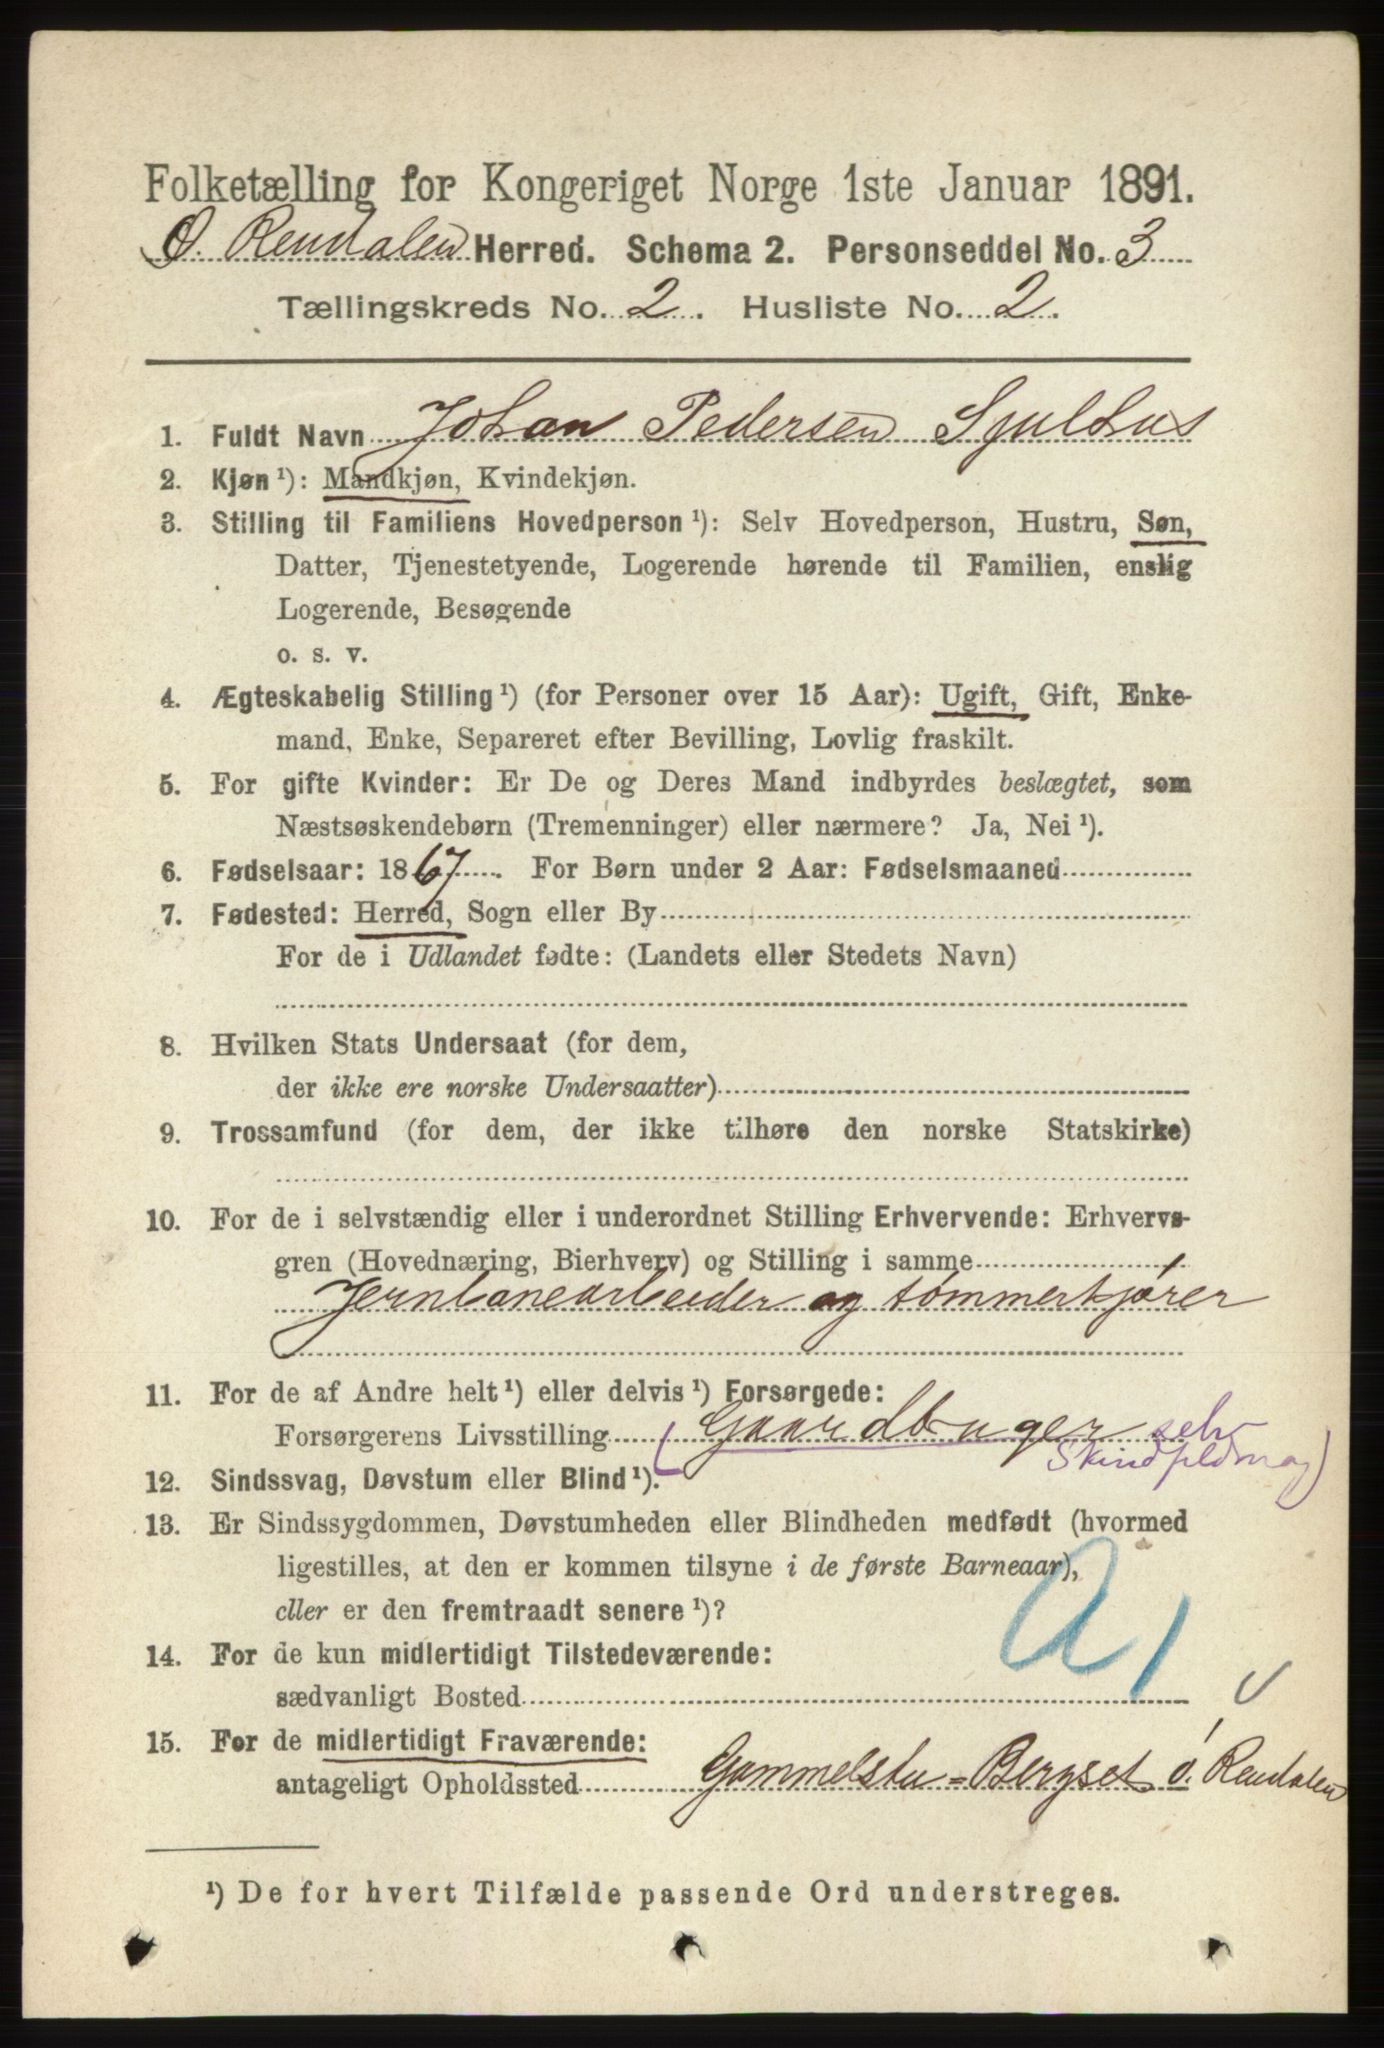 Folketælling for Kongeriget Norge 1ste Januar 1891.
Ø. Rendalen Herred. Schema 2. Personseddel No. 3
Tællingskreds No. 2. Husliste No. 2.
1. Fuldt Navn Johan Pedersen Sjulhus
2. Kjøn ¹): Mandkjøn, Kvindekjøn.
3. Stilling til Familiens Hovedperson ¹): Selv Hovedperson, Hustru, Søn,
Datter, Tjenestetyende, Logerende hørende til Familien, enslig
Logerende, Besøgende
o. s. v.
4. Ægteskabelig Stilling ¹) (for Personer over 15 Aar): Ugift, Gift, Enke-
mand, Enke, Separeret efter Bevilling, Lovlig fraskilt.
5. For gifte Kvinder: Er De og Deres Mand indbyrdes beslægtet, som
Næstsøskendebørn (Tremenninger) eller nærmere? Ja, Nei ¹).
6. Fødselsaar: 1867. For Børn under 2 Aar: Fødselsmaaned
7. Fødested: Herred, Sogn eller By
For de i Udlandet fødte: (Landets eller Stedets Navn)
8. Hvilken Stats Undersaat (for dem,
der ikke ere norske Undersaatter)
9. Trossamfund (for dem, der ikke tilhøre den norske Statskirke)
10. For de i selvstændig eller i underordnet Stilling Erhvervende: Erhvervs-
gren (Hovednæring, Bierhverv) og Stilling i samme
Jernbanearbeider og tømmerkjører
11. For de af Andre helt ¹) eller delvis ¹) Forsørgede:
Forsørgerens Livsstilling (Gaardbruger selv
12. Sindssvag, Døvstum eller Blind ¹).
13. Er Sindssygdommen, Døvstumheden eller Blindheden medfødt (hvormed
ligestilles, at den er kommen tilsyne i de første Barneaar),
eller er den fremtraadt senere ¹)?
14. For de kun midlertidigt Tilstedeværende:
sædvanligt Bosted
15. For de midlertidigt Fraværende:
antageligt Opholdssted Gammelstu=Bergset ø. Rendalen
¹) De for hvert Tilfælde passende Ord understreges.